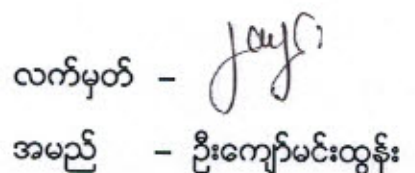 လက်မှတ် –
အမည် – ဦးကျော်မင်းထွန်း